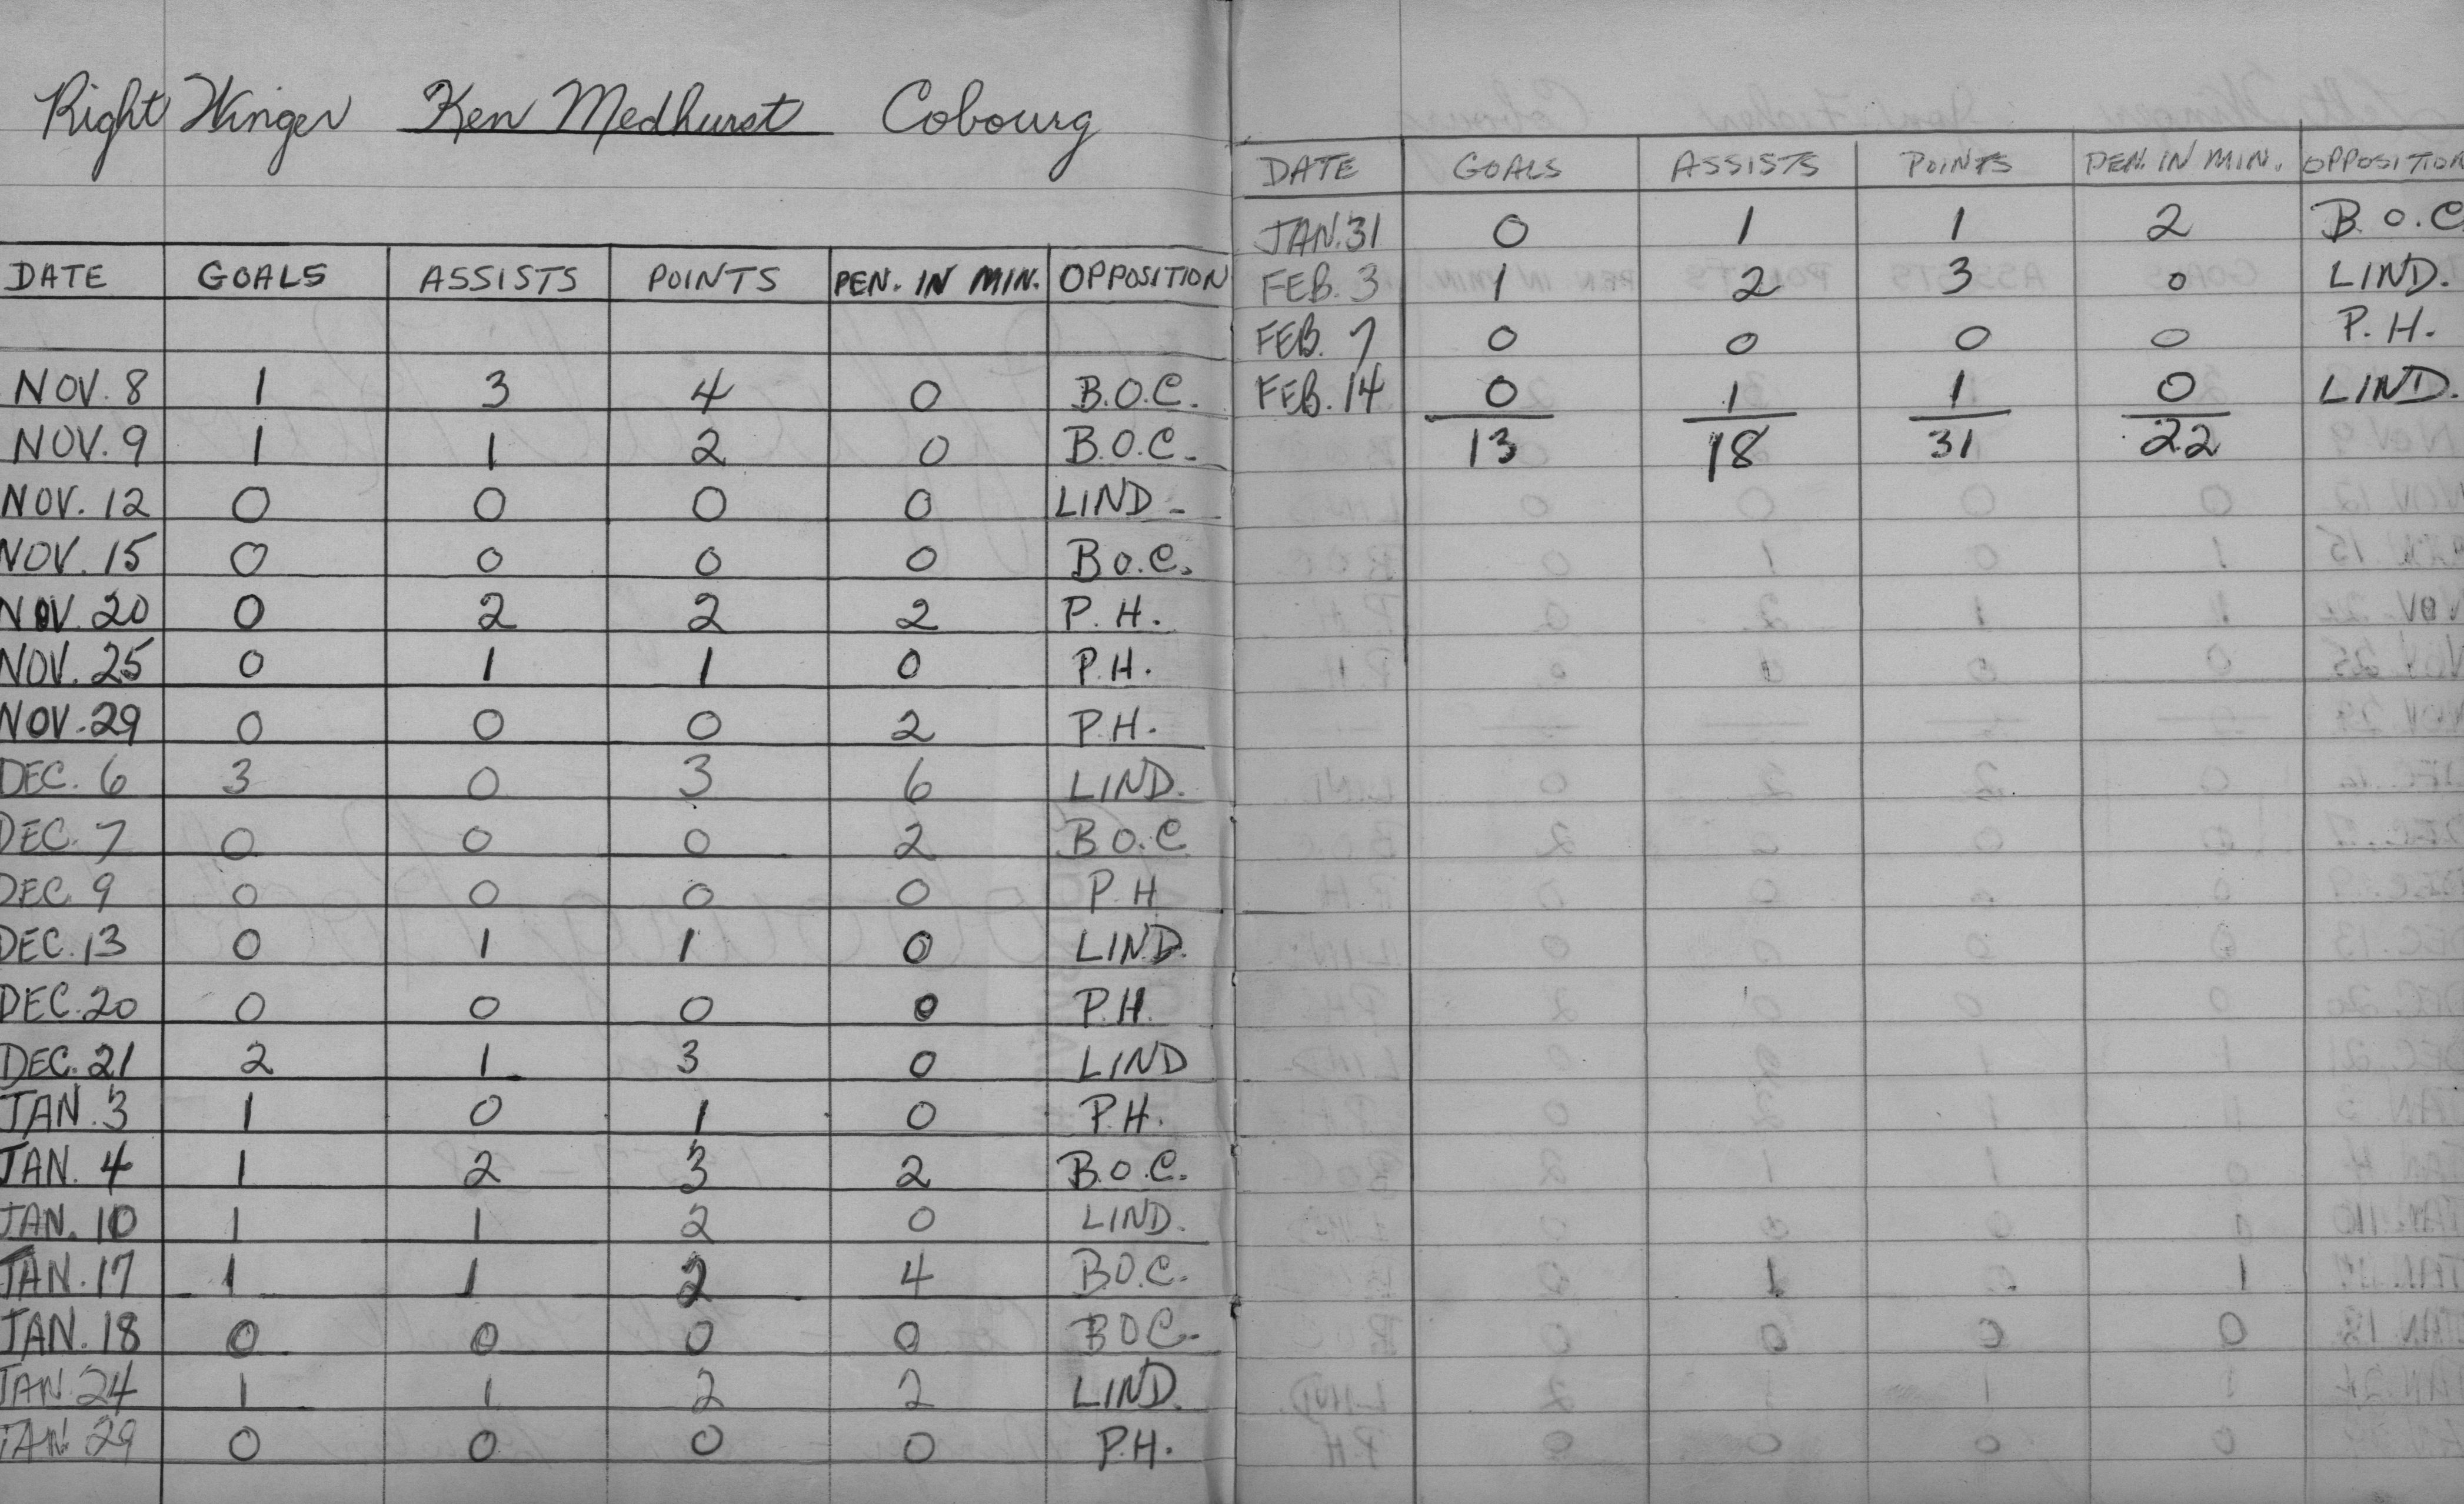 Right Winger Ken Medhurst Cobourg
DATE GOALS ASSISTS POINTS PEN. IN MIN. OPPOSITION
NOV. 8 1 3 4 0 B.O.C.
NOV. 9 1 1 2 0 B.O.C.
NOV. 12 0 0 0 0 LIND
NOV. 15 0 0 0 0 B.O.C.
NOV. 20 0 2 2 2 P.H.
NOV. 25 0 1 1 0 P.H.
NOV. 29 0 0 0 2 P.H.
DEC. 6 3 0 3 6 LIND.
DEC. 7 0 0 0 2 B.O.C
DEC. 9 0 0 0 0 P.H
DEC. 13 0 1 1 0 LIND.
DEC. 20 0 0 0 0 P.H.
DEC. 21 2 1 3 0 LIND
JAN. 3 1 0 1 0 P.H.
JAN. 4 1 2 3 2 B.O.C.
JAN. 10 1 1 2 0 LIND.
JAN. 17 1 1 2 4 B.O.C.
JAN. 18 0 0 0 0 BOC.
JAN. 24 1 1 2 2 LIND.
JAN. 29 0 0 0 0 P.H.
DATE GOALS ASSISTS POINTS PEN. IN MIN. OPPOSITION
JAN. 31 0 1 1 2 B.O.C
FEB. 3 1 2 3 0 LIND.
FEB. 7 0 0 0 0 P.H.
FEB. 14 0 1 1 0 LIND.
13 18 31 22